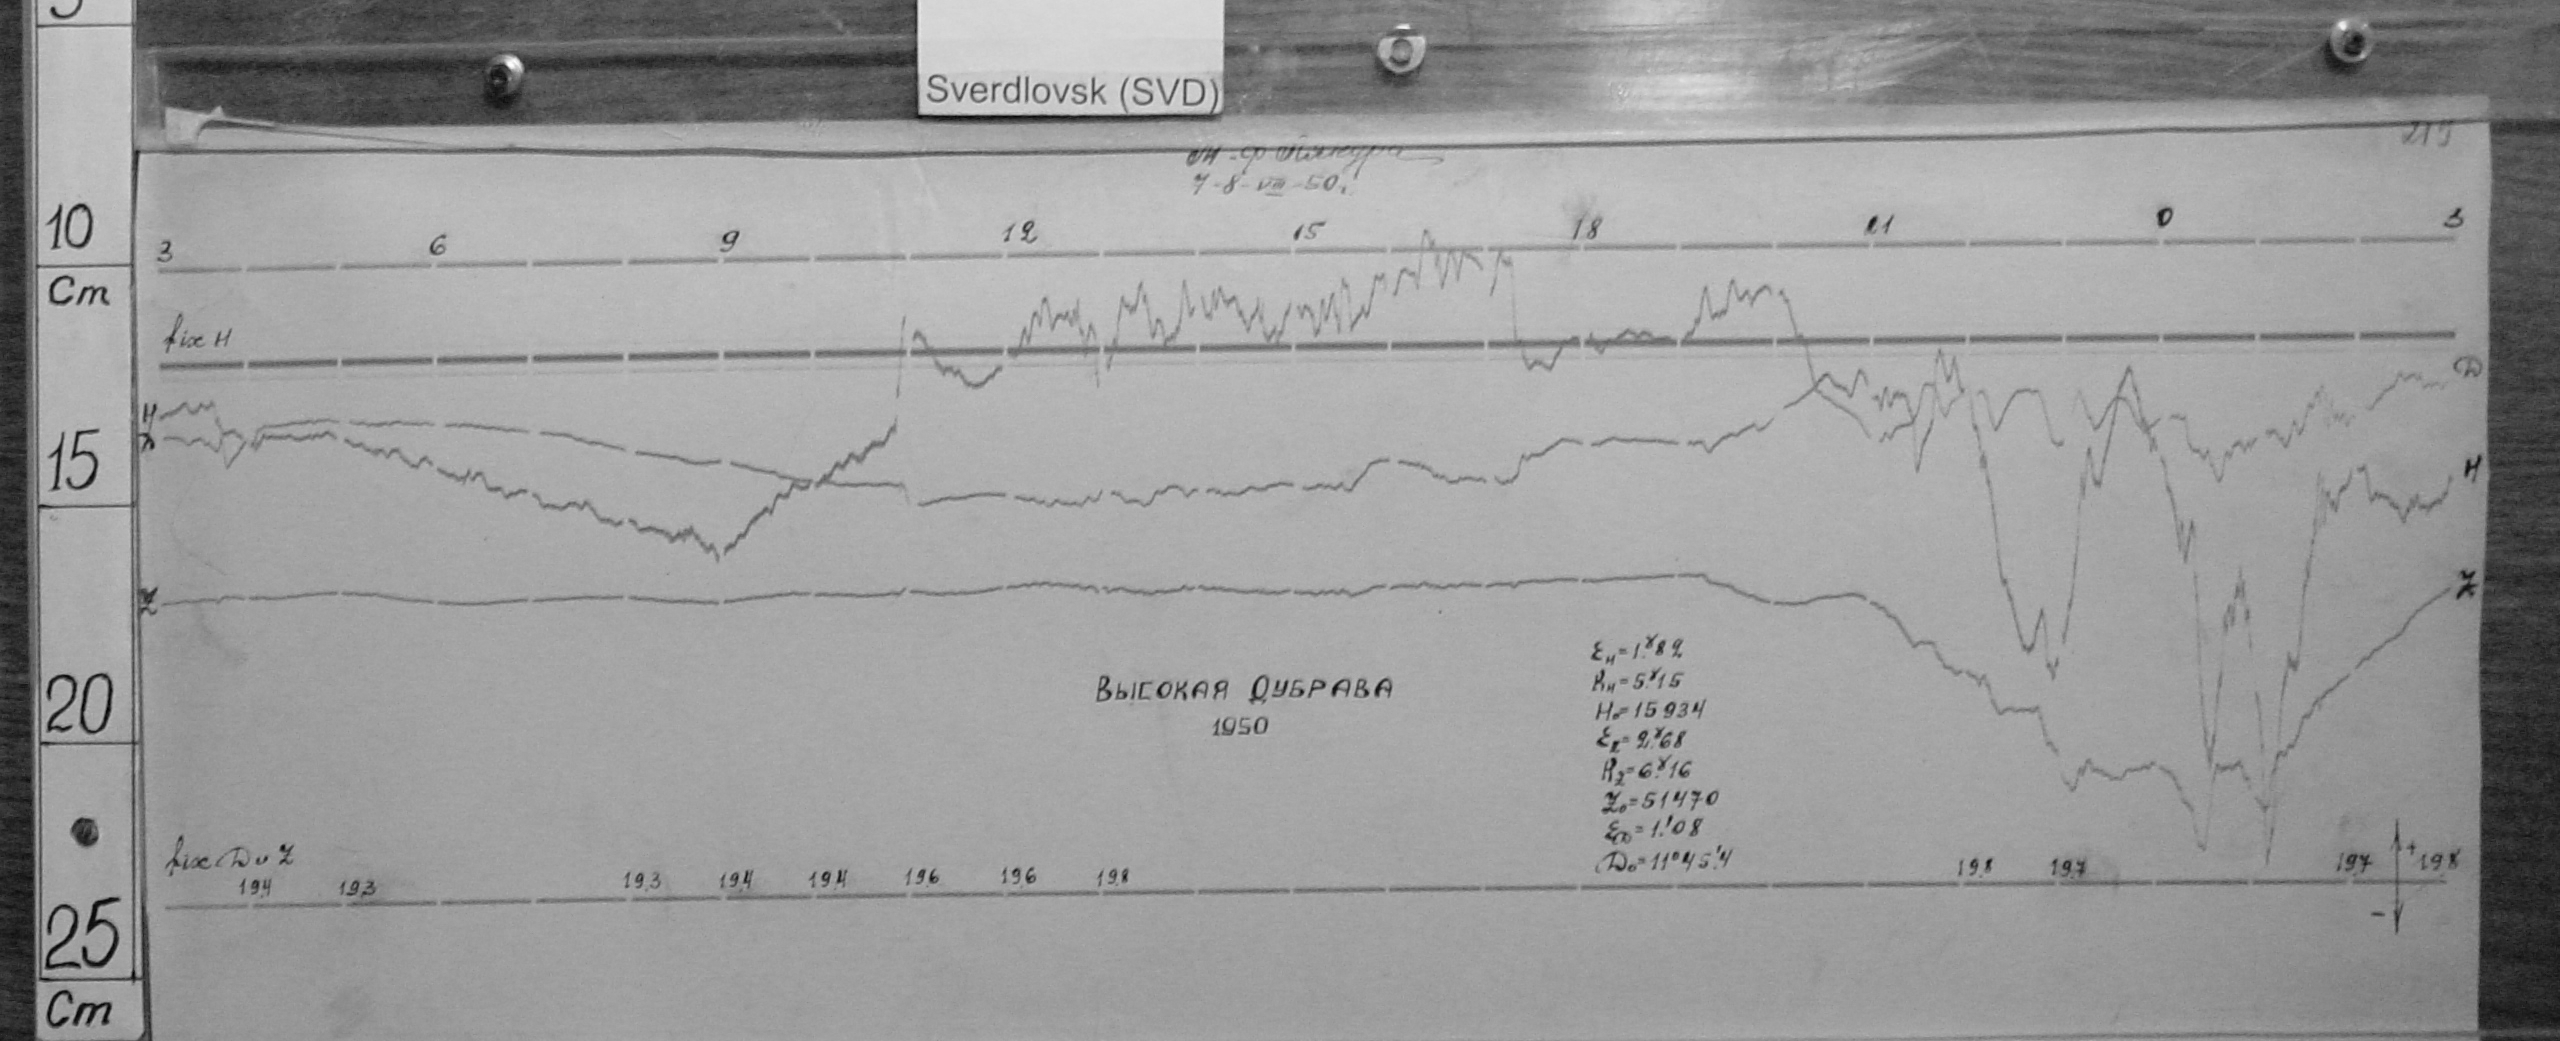 Sverdlovsk (SVD)
219
7-8-VIII-50г.
10
Cm
15
20
25
Cm
3 6 9 12 15 18 21 0 3
fix H
H
D
Z
D
H
Z
ВЫСОКАЯ ДУБРАВА
1950
εH=1.ˠ82
RH=5.ˠ15
H₀=15934
εZ=2.ˠ68
RZ=6.ˠ16
Z₀=51470
εD=1.'08
D₀=11°45.'4
fix D и Z
19.4 19.3 19.3 19.4 19.4 19.6 19.6 19.8 19.8 19.7 19.7 + 19.8
-